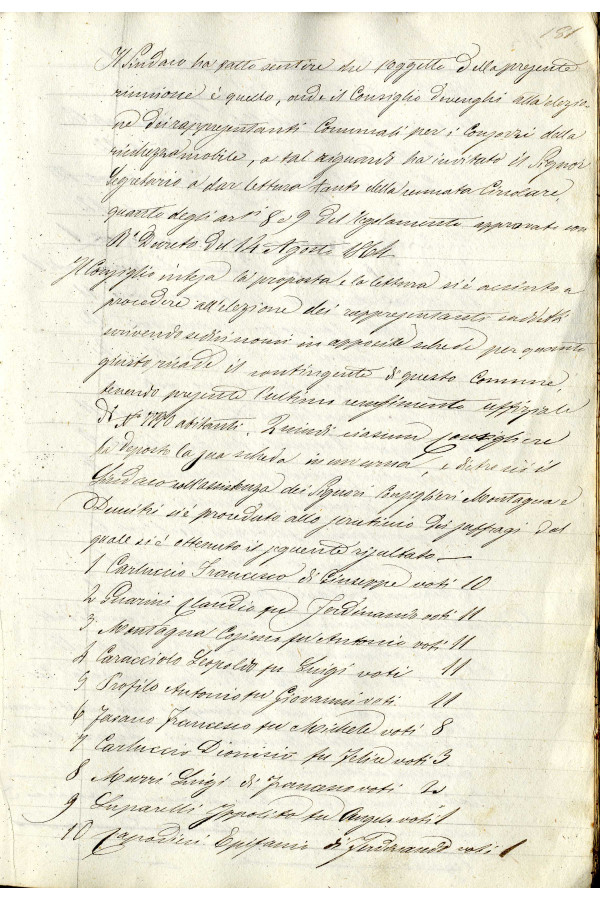 181
Il Sindaco ha fatto sentire che l'oggetto della presente
riunione è questo, onde il Consiglio devenghi alla elezio
ne dei rappresentanti Comunali per i Consorzi della
ricchezza mobile, a tal riguardo ha invitato il Signor
Segretario a dar lettura tanto della cennata Circolare,
quanto degli arti 8 e 9 del Regolamento approvato con
R.o Decreto del 14 Agosto 1864
Il Consiglio intesa la proposta e la lettura si è accinto a
procedere all'elezione dei rappresentanti suddetti
scrivendo sedici nomi in apposite schede per quanto
giusto risiede il contingente di questo Comune,
tenendo presente l'ultimo censimento uffiziale
di No 1790 abitanti. Quindi ciascun Consigliere
ha deposto la sua scheda in un'urna, e dietro ciò il
Sindaco coll'assistenza dei Signori Consiglieri Montagna e
Dimitri si è proceduto allo scrutinio dei suffragi dal
quale si è ottenuto il seguente risultato —
1 Carluccio Francesco di Giuseppe voti 10
2 Guarini Claudio fu Ferdinando voti 11
3 Montagna Cosimo fu Antonio voti 11
4 Caracciolo Leopoldo fu Luigi voti 11
5 Profilo Antonio fu Giovanni voti 11
6 Fasano Francesco fu Michele voti 8
7 Carluccio Dionisio fu Felice voti 3
8 Murri Luigi di Francesco voti 2
9 Luparelli Ippolito fu Angelo voti 1
10 Capodieci Epifanio di Ferdinando voti 1